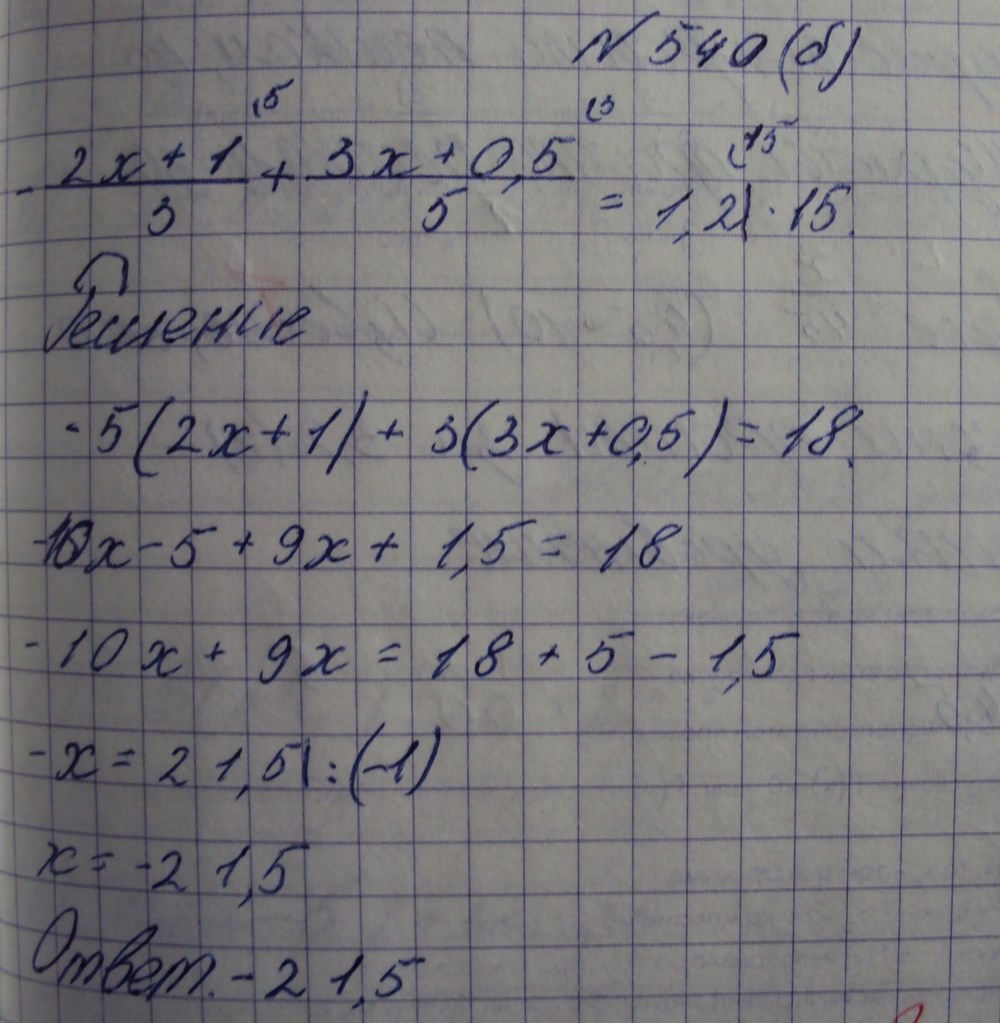 № 540 (б)
- (2x + 1)/3 ⁵ + (3x + 0,5)/5 ³ = 1,2 ¹⁵ | · 15
Решение
-5(2x + 1) + 3(3x + 0,5) = 18
-10x - 5 + 9x + 1,5 = 18
-10x + 9x = 18 + 5 - 1,5
-x = 21,5 | : (-1)
x = -21,5
Ответ. -21,5